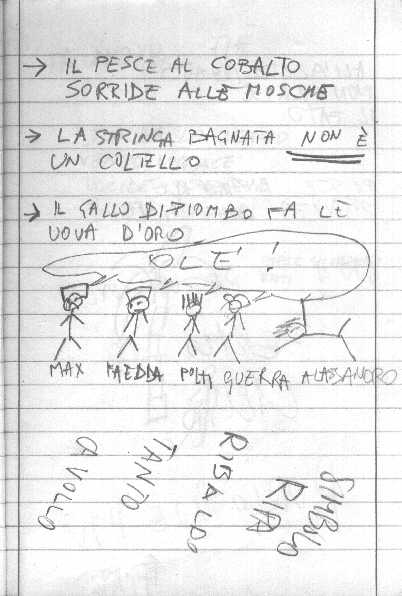 → IL PESCE AL COBALTO
SORRIDE ALLE MOSCHE
→ LA STRINGA BAGNATA NON È
UN COLTELLO
→ IL GALLO DI PIOMBO FA LE
UOVA D'ORO
OLE'!
MAX FAEDDA POLI GUERRA ALASSANDRO
AVOLLO
TANTO
RIBALDO
RIPA
SIMBILO